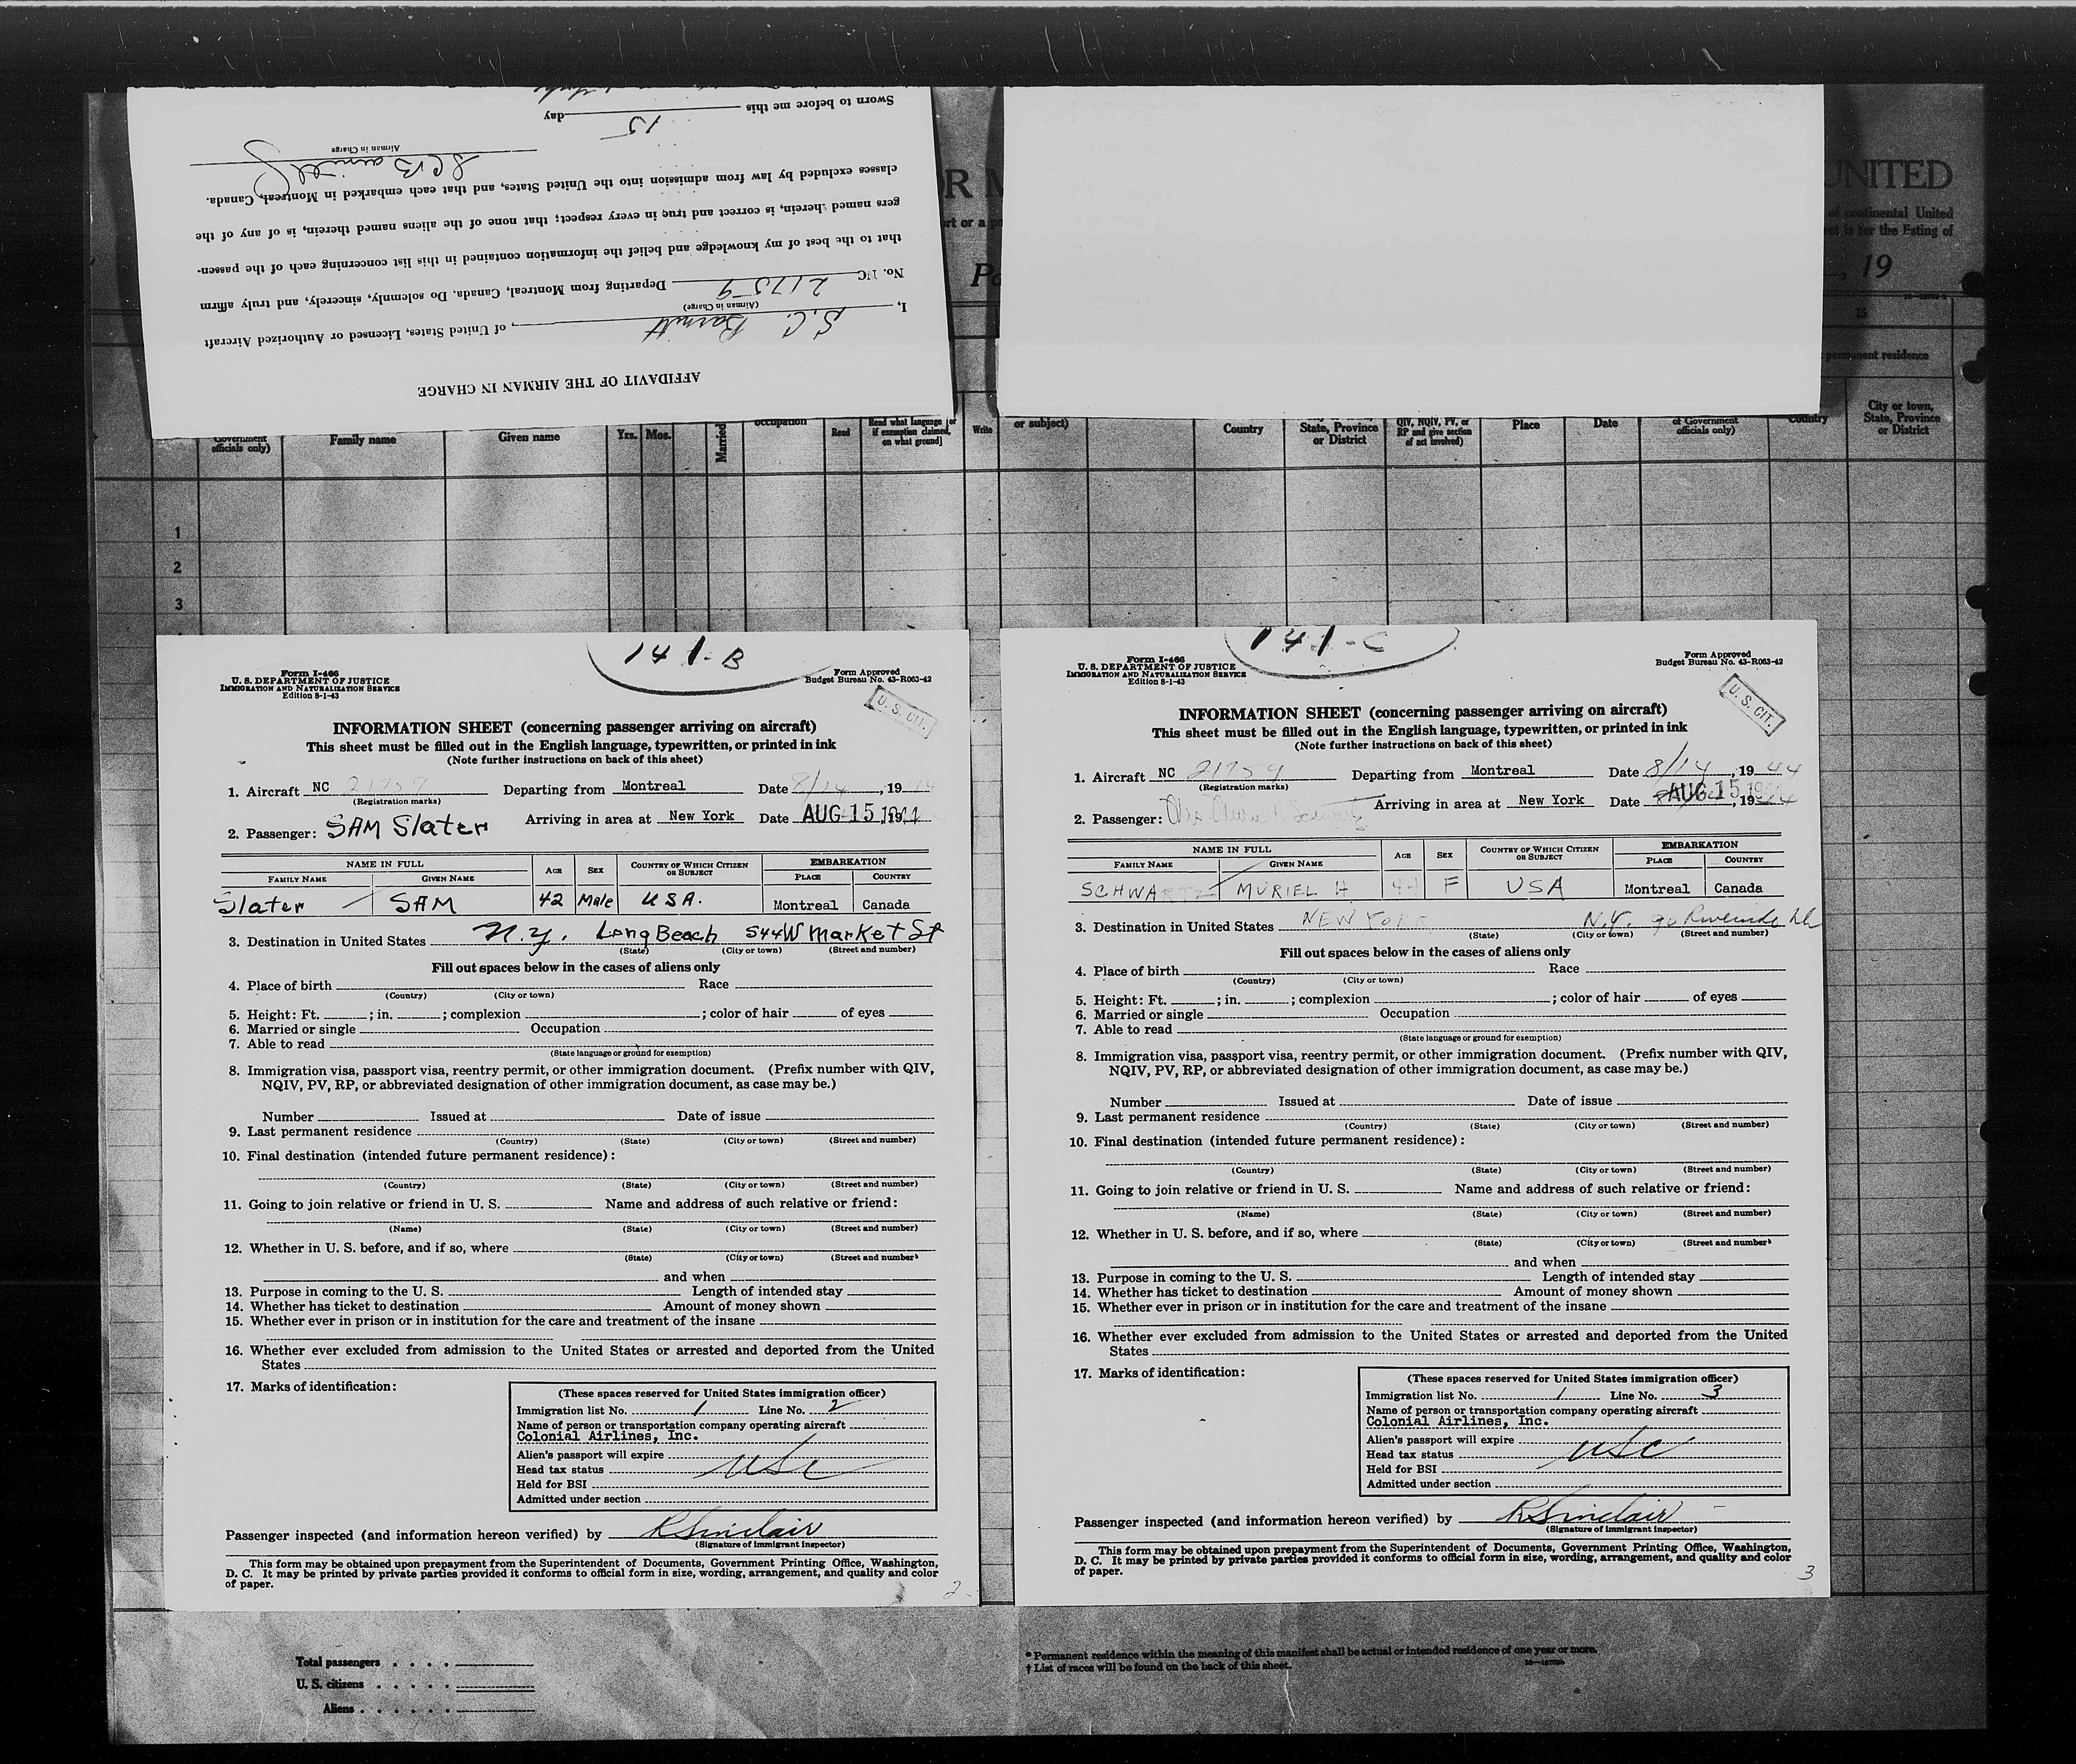 AFFIDAVIT OF THE AIRMAN IN CHARGE
I, S.C. , of United States, Licensed or Authorized Aircraft
(Airman in Charge)
No. NC 21759 Departing from Montreal, Canada, Do solemnly, sincerely, and truly affirm
that to the best of my knowledge and belief the information contained in this list concerning each of the passen-
gers named herein, is correct and true in every respect; that none of the aliens named therein, is of any of the
classes excluded by law from admission into the United States, and that each embarked in Montreal, Canada.
Airman in Charge
Sworn to before me this 15 day
R
UNITED
of continental United
rt or a
eet is for the listing of
, 19
15
permanent residence
Government officials only)
Family name
Given name
Yrs.
Mos.
Married
occupation
Read
Read what language [or
if exemption claimed,
on what ground]
Write
or subject)
Country
State, Province
or District
QIV, NQIV, PV, or
RP and give section
of act involved)
Place
Date
of Government
officials only)
Country
City or town,
State, Province
or District
1
2
3
141-B
Form I-466
U. S. DEPARTMENT OF JUSTICE
IMMIGRATION AND NATURALIZATION SERVICE
Edition 8-1-43
Form Approved
Budget Bureau No. 43-R063-42
U. S. CIT.
INFORMATION SHEET (concerning passenger arriving on aircraft)
This sheet must be filled out in the English language, typewritten, or printed in ink
(Note further instructions on back of this sheet)
1. Aircraft NC 21759 Departing from Montreal Date 8/14, 1944
(Registration marks)
Arriving in area at New York Date AUG 15 1944
2. Passenger: SAM Slater
NAME IN FULL
FAMILY NAME
GIVEN NAME
AGE
SEX
COUNTRY OF WHICH CITIZEN
OR SUBJECT
EMBARKATION
PLACE
COUNTRY
Slater SAM 42 Male USA. Montreal Canada
3. Destination in United States N.Y. Long Beach 544 W Market St
(State) (City or town) (Street and number)
Fill out spaces below in the cases of aliens only
4. Place of birth Race
(Country) (City or town)
5. Height: Ft. ; in. ; complexion ; color of hair of eyes
6. Married or single Occupation
7. Able to read
(State language or ground for exemption)
8. Immigration visa, passport visa, reentry permit, or other immigration document. (Prefix number with QIV,
NQIV, PV, RP, or abbreviated designation of other immigration document, as case may be.)
Number Issued at Date of issue
9. Last permanent residence
(Country) (State) (City or town) (Street and number)
10. Final destination (intended future permanent residence):
(Country) (State) (City or town) (Street and number)
11. Going to join relative or friend in U. S. Name and address of such relative or friend:
(Name) (State) (City or town) (Street and number)
12. Whether in U. S. before, and if so, where
(State) (City or town) (Street and number)
and when
13. Purpose in coming to the U. S. Length of intended stay
14. Whether has ticket to destination Amount of money shown
15. Whether ever in prison or in institution for the care and treatment of the insane
16. Whether ever excluded from admission to the United States or arrested and deported from the United
States
17. Marks of identification:
(These spaces reserved for United States immigration officer)
Immigration list No. 1 Line No. 2
Name of person or transportation company operating aircraft
Colonial Airlines, Inc.
Alien's passport will expire
Head tax status USC
Held for BSI
Admitted under section
Passenger inspected (and information hereon verified) by R Sinclair
(Signature of immigrant inspector)
This form may be obtained upon prepayment from the Superintendent of Documents, Government Printing Office, Washington,
D. C. It may be printed by private parties provided it conforms to official form in size, wording, arrangement, and quality and color
of paper.
2
141-C
Form I-466
U. S. DEPARTMENT OF JUSTICE
IMMIGRATION AND NATURALIZATION SERVICE
Edition 8-1-43
Form Approved
Budget Bureau No. 43-R063-42
U. S. CIT.
INFORMATION SHEET (concerning passenger arriving on aircraft)
This sheet must be filled out in the English language, typewritten, or printed in ink
(Note further instructions on back of this sheet)
1. Aircraft NC 21759 Departing from Montreal Date 8/14, 1944
(Registration marks)
Arriving in area at New York Date AUG 15 1944
2. Passenger: Schwartz
NAME IN FULL
FAMILY NAME
GIVEN NAME
AGE
SEX
COUNTRY OF WHICH CITIZEN
OR SUBJECT
EMBARKATION
PLACE
COUNTRY
SCHWARTZ MURIEL H 44 F USA Montreal Canada
3. Destination in United States NEW YORK N.Y. 90 Riverside Dr
(State) (City or town) (Street and number)
Fill out spaces below in the cases of aliens only
4. Place of birth Race
(Country) (City or town)
5. Height: Ft. ; in. ; complexion ; color of hair of eyes
6. Married or single Occupation
7. Able to read
(State language or ground for exemption)
8. Immigration visa, passport visa, reentry permit, or other immigration document. (Prefix number with QIV,
NQIV, PV, RP, or abbreviated designation of other immigration document, as case may be.)
Number Issued at Date of issue
9. Last permanent residence
(Country) (State) (City or town) (Street and number)
10. Final destination (intended future permanent residence):
(Country) (State) (City or town) (Street and number)
11. Going to join relative or friend in U. S. Name and address of such relative or friend:
(Name) (State) (City or town) (Street and number)
12. Whether in U. S. before, and if so, where
(State) (City or town) (Street and number)
and when
13. Purpose in coming to the U. S. Length of intended stay
14. Whether has ticket to destination Amount of money shown
15. Whether ever in prison or in institution for the care and treatment of the insane
16. Whether ever excluded from admission to the United States or arrested and deported from the United
States
17. Marks of identification:
(These spaces reserved for United States immigration officer)
Immigration list No. 1 Line No. 3
Name of person or transportation company operating aircraft
Colonial Airlines, Inc.
Alien's passport will expire
Head tax status USC
Held for BSI
Admitted under section
Passenger inspected (and information hereon verified) by R Sinclair
(Signature of immigrant inspector)
This form may be obtained upon prepayment from the Superintendent of Documents, Government Printing Office, Washington,
D. C. It may be printed by private parties provided it conforms to official form in size, wording, arrangement, and quality and color
of paper.
3
Total passengers
U. S. citizens
Aliens
* Permanent residence within the meaning of this manifest shall be actual or intended residence of one year or more.
† List of races will be found on the back of this sheet.